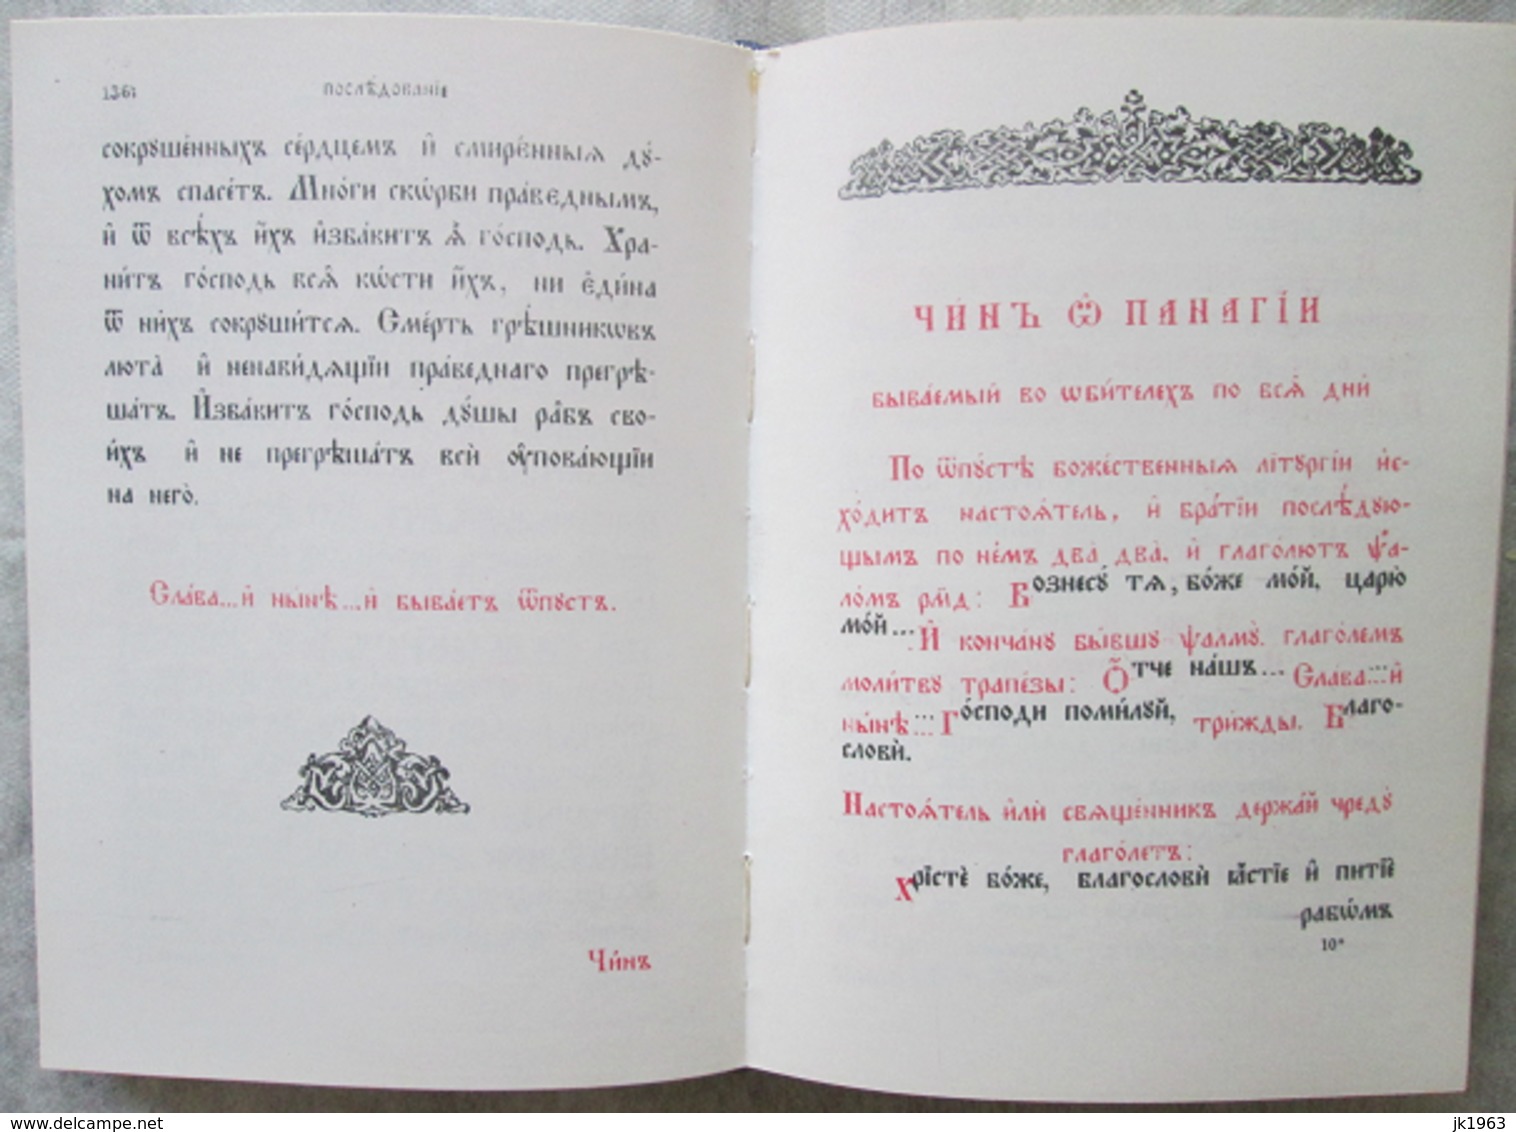 послѣ́дованїе
сокрꙋше́нныхъ се́рдцемъ и҆ смире́нныѧ дꙋ́-
хомъ спасе́тъ. Мнѡ́ги скѡ́рби пра́веднымъ,
и҆ ѿ всѣ́хъ и҆́хъ и҆зба́витъ ѧ҆̀ го́сподь. Хра-
ни́тъ го́сподь всѧ̑ кѡ́сти и҆́хъ, ни є҆ди́на
ѿ ни́хъ сокрꙋши́тсѧ. Сме́рть грѣ́шникѡвъ
люта̀ и҆ ненави́дѧщїи пра́веднаго прегрѣ-
ша́тъ. И҆зба́витъ го́сподь дꙋ́шы ра̑бъ сво-
и́хъ и҆ не прегрѣша́тъ всѝ ᲂу҆пова́ющїи
на него̀.
Сла́ва...и҆ ны́нѣ...и҆ быва́етъ ѿпꙋстъ.
Чи́нъ
ЧИ́НЪ Ѽ ПАНАГІ́И
быва́емый во ѡби́телехъ по всѧ̑ дни̑
По ѿпꙋ́стѣ боже́ственныѧ лїтꙋргі́и и҆с-
хо́дитъ настоѧ́тель, и҆ бра́тїи послѣ́дꙋю-
щымъ по не́мъ два̀ два̀, и҆ глаго́лютъ ѱа-
ло́мъ рм҃д: Вознесꙋ́ тѧ, бо́же мо́й, царю̀
мо́й... И҆ конча́нꙋ бы́вшꙋ ѱалмꙋ̀, глаго́лемъ
моли́твꙋ трапе́зы: Ѻ҆́тче на́шъ... Сла́ва...и҆
ны́нѣ... Го́споди поми́лꙋй, три́жды. Благо-
словѝ.
Настоѧ́тель и҆лѝ свѧще́нникъ держа́й чредꙋ̀
глаго́летъ:
Хрїстѐ бо́же, благословѝ ꙗ҆́стїе и҆ питїѐ
рабѡ́мъ
10*
www.delcampe.net
jk1963